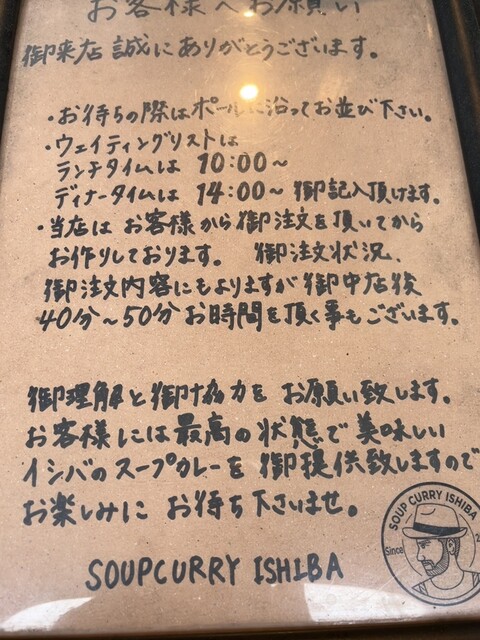 お客様へお願い
御来店誠にありがとうございます。
・お待ちの際はポールに沿ってお並び下さい。
・ウェイティングリストは
ランチタイムは 10:00～
ディナータイムは 14:00～ 御記入頂けます。
・当店は お客様から御注文を頂いてから
お作りしております。 御注文状況、
御注文内容にもよりますが 御中店後
40分～50分お時間を頂く事もございます。
御理解と御協力を お願い致します。
お客様には最高の状態で美味しい
イシバのスープカレーを 御提供致しますので
お楽しみに お待ち下さいませ。
SOUPCURRY ISHIBA
SOUP CURRY ISHIBA
Since